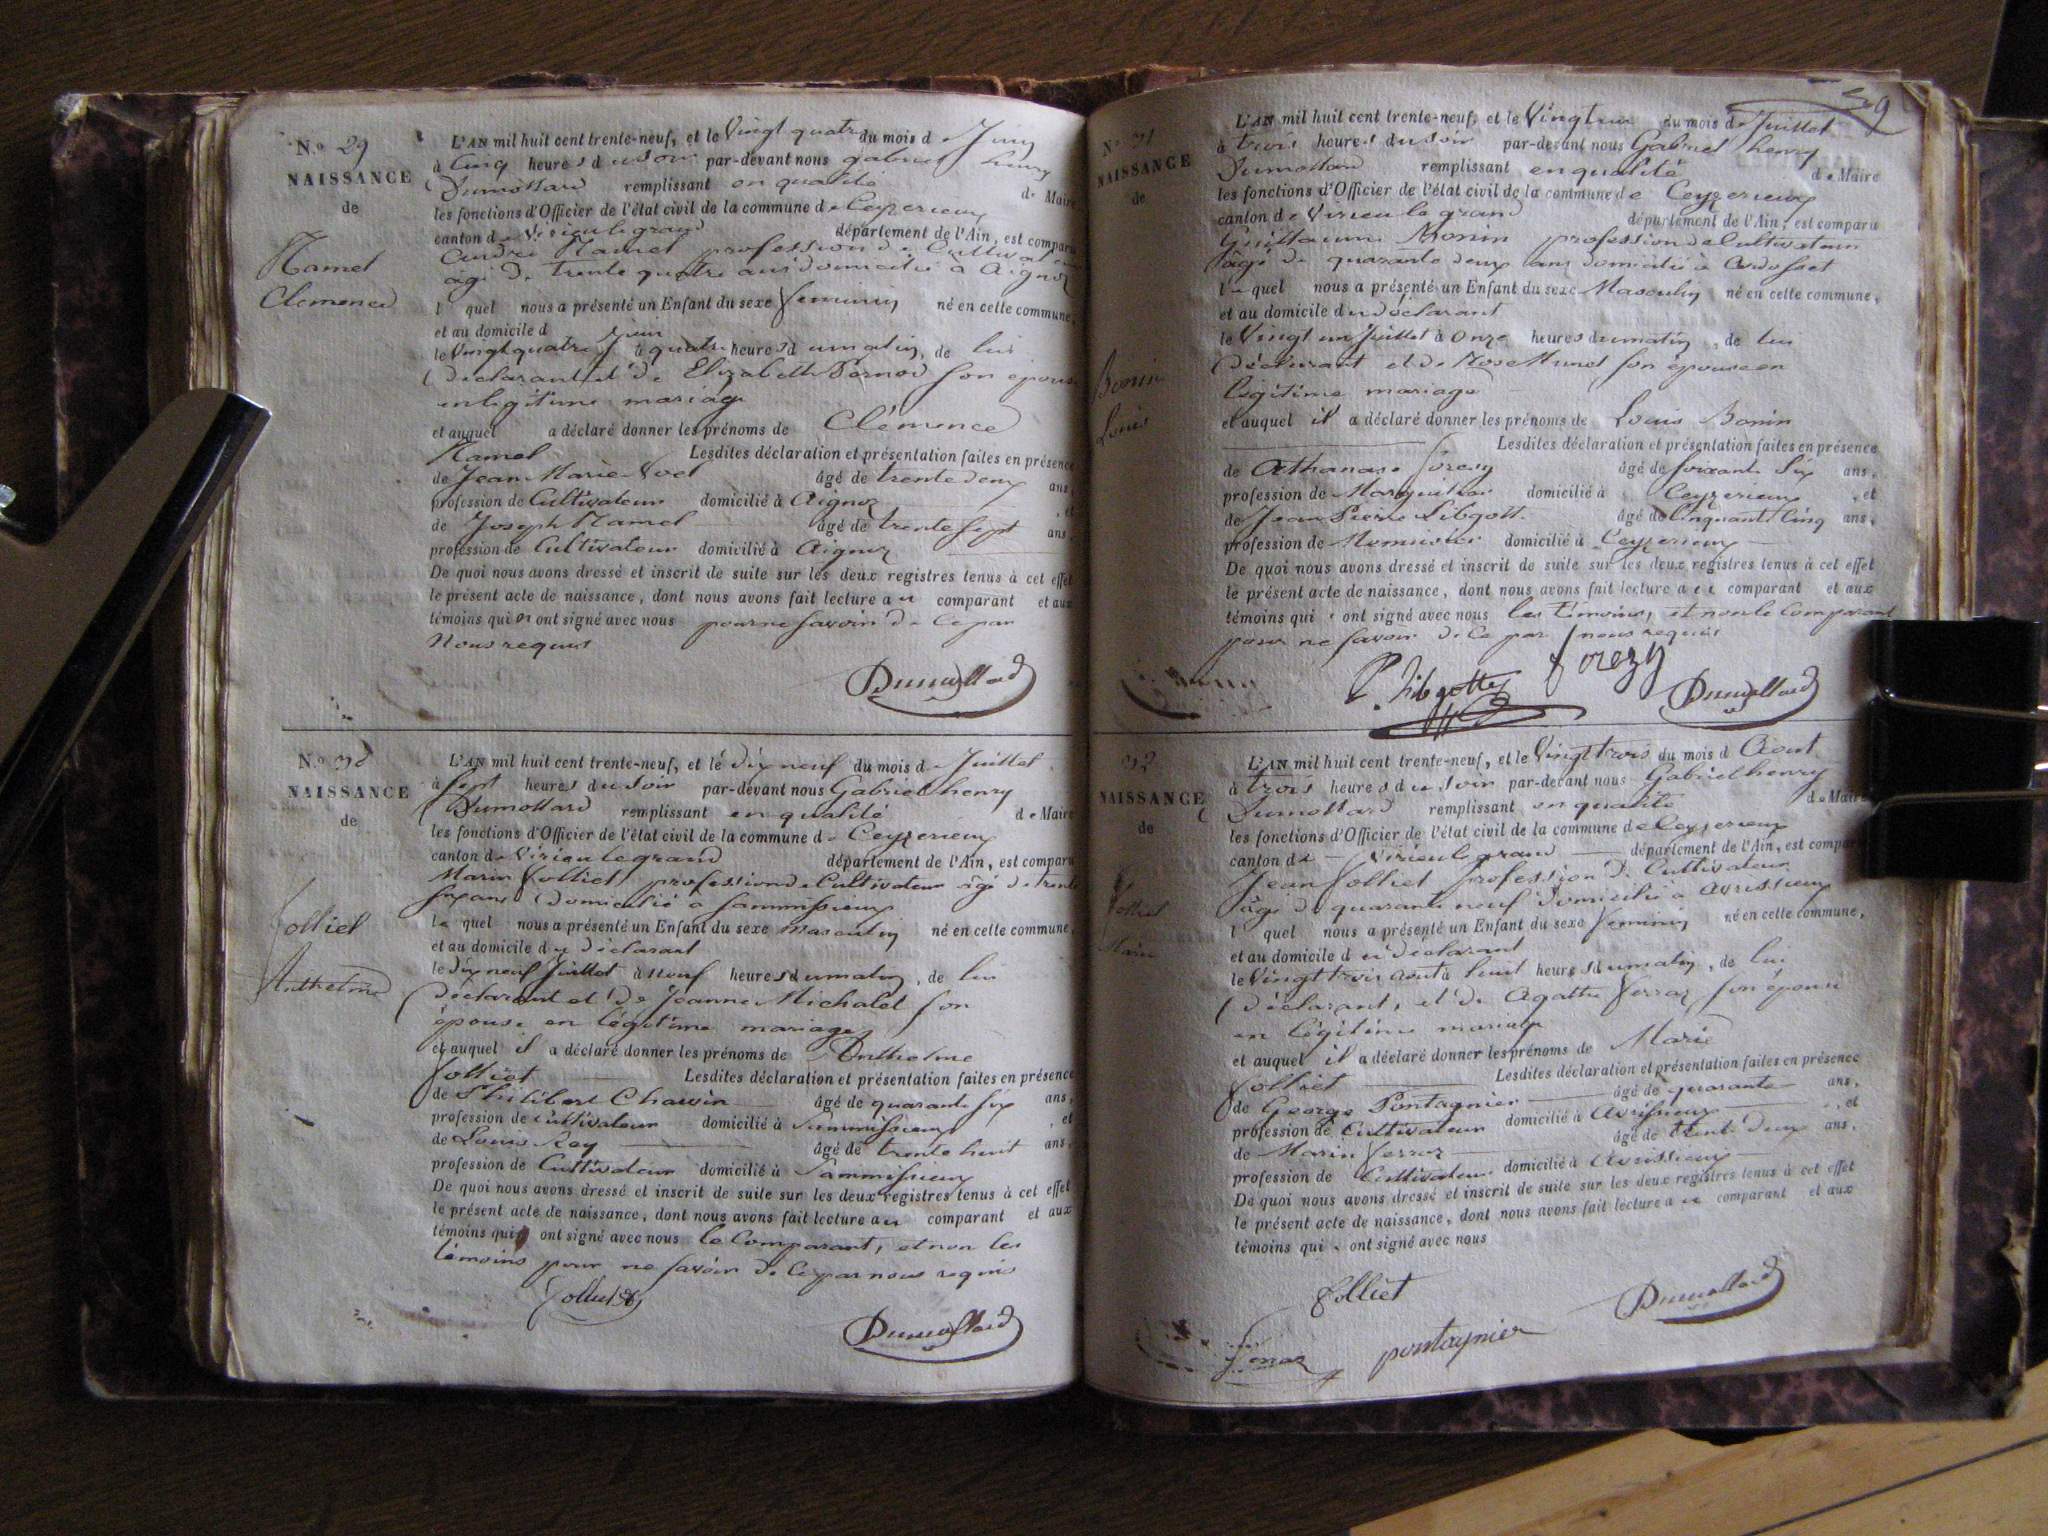 N.o 29
NAISSANCE
de
Hamel
Clemence
L'AN mil huit cent trente-neuf, et le Vingt quatre du mois de Juin
à Cinq heures du soir par-devant nous gabriel henry
Dumollard remplissant en qualité de Maire
les fonctions d'Officier de l'état civil de la commune de Ceyzerieux
canton de Virieu le grand département de l'Ain, est comparu
andré Hamel profession de Cultivateur
âgé de trente quatre ans domicilié à Aignoz
l quel nous a présenté un Enfant du sexe feminin né en cette commune,
et au domicile d
le Vingt quatre Juin à quatre heures du matin, de lui
déclarant et de Elizabeth Pernod son épouse
en légitime mariage
et auquel a déclaré donner les prénoms de Clémence
Hamel Lesdites déclaration et présentation faites en présence
de Jean Marie âgé de trente deux ans,
profession de Cultivateur domicilié à Aignoz , et
de Joseph Hamel âgé de trente sept ans,
profession de Cultivateur domicilié à Aignoz
De quoi nous avons dressé et inscrit de suite sur les deux registres tenus à cet effet
le présent acte de naissance, dont nous avons fait lecture au comparant et aux
témoins qui n ont signé avec nous pour ne savoir de ce par
Nous requis
Dumollard
N.o 30
NAISSANCE
de
Folliet
Anthelme
L'AN mil huit cent trente-neuf, et le dix neuf du mois de Juillet
à sept heures du soir par-devant nous Gabriel henry
Dumollard remplissant en qualité de Maire
les fonctions d'Officier de l'état civil de la commune de Ceyzerieux
canton de Virieu le grand département de l'Ain, est comparu
Marin Folliet profession de Cultivateur âgé de trente
six ans domicilié a Sammissieux
le quel nous a présenté un Enfant du sexe masculin né en cette commune,
et au domicile du déclarant
le dix neuf Juillet à neuf heures du matin, de lui
déclarant et de Jeanne Michalet son
épouse en légitime mariage
et auquel il a déclaré donner les prénoms de Anthelme
Folliet Lesdites déclaration et présentation faites en présence
de Philibert Chauvin âgé de quarante six ans,
profession de cultivateur domicilié à Sammissieux , et
de Louis Rey âgé de trente huit ans,
profession de Cultivateur domicilié à Sammissieux
De quoi nous avons dressé et inscrit de suite sur les deux registres tenus à cet effet
le présent acte de naissance, dont nous avons fait lecture au comparant et aux
témoins qui ont signé avec nous le Comparant, et non les
témoins pour ne savoir de ce par nous requis
Folliet
Dumollard
9
N.o 31
NAISSANCE
de
Bonin
Louis
L'AN mil huit cent trente-neuf, et le Vingt un du mois de Juillet
à trois heures du soir par-devant nous Gabriel henry
Dumollard remplissant en qualité de Maire
les fonctions d'Officier de l'état civil de la commune de Ceyzerieux
canton de Virieu le grand département de l'Ain, est comparu
Guillaume Bonin profession de Cultivateur
âgé de quarante deux ans domicilié à Ardosset
le quel nous a présenté un Enfant du sexe Masculin né en cette commune,
et au domicile du déclarant
le Vingt un Juillet à onze heures du matin, de lui
déclarant et de Rose Munet son épouse en
légitime mariage
et auquel il a déclaré donner les prénoms de Louis Bonin
Lesdites déclaration et présentation faites en présence
de Athanase forezy âgé de soixante six ans,
profession de Marguillier domicilié à Ceyzerieux , et
de Jean Pierre Libgott âgé de Cinquante Cinq ans,
profession de Menuisier domicilié à Ceyzerieux
De quoi nous avons dressé et inscrit de suite sur les deux registres tenus à cet effet
le présent acte de naissance, dont nous avons fait lecture au comparant et aux
témoins qui ont signé avec nous les témoins, et non le Comparant
pour ne savoir de ce par nous requis
P. Libgotte forezy Dumollard
32
NAISSANCE
de
Folliet
Marie
L'AN mil huit cent trente-neuf, et le Vingt trois du mois d Aout
à trois heures du soir par-devant nous Gabriel henry
Dumollard remplissant en qualité de Maire
les fonctions d'Officier de l'état civil de la commune de Ceyzerieux
canton de Virieu le grand département de l'Ain, est comparu
Jean Folliet profession de Cultivateur
âgé de quarante neuf domicilié à Avrissieux
l quel nous a présenté un Enfant du sexe feminin né en cette commune,
et au domicile du déclarant
le Vingt trois aout à huit heures du matin, de lui
déclarant, et de Agathe ferraz son épouse
en légitime mariage
et auquel il a déclaré donner les prénoms de Marie
Folliet Lesdites déclaration et présentation faites en présence
de George Pontagnier âgé de quarante ans,
profession de Cultivateur domicilié à Avrissieux , et
de Marin ferraz âgé de trente deux ans,
profession de Cultivateur domicilié à Avrissieux
De quoi nous avons dressé et inscrit de suite sur les deux registres tenus à cet effet
le présent acte de naissance, dont nous avons fait lecture au comparant et aux
témoins qui ont signé avec nous
folliet Dumollard
ferraz pontagnier